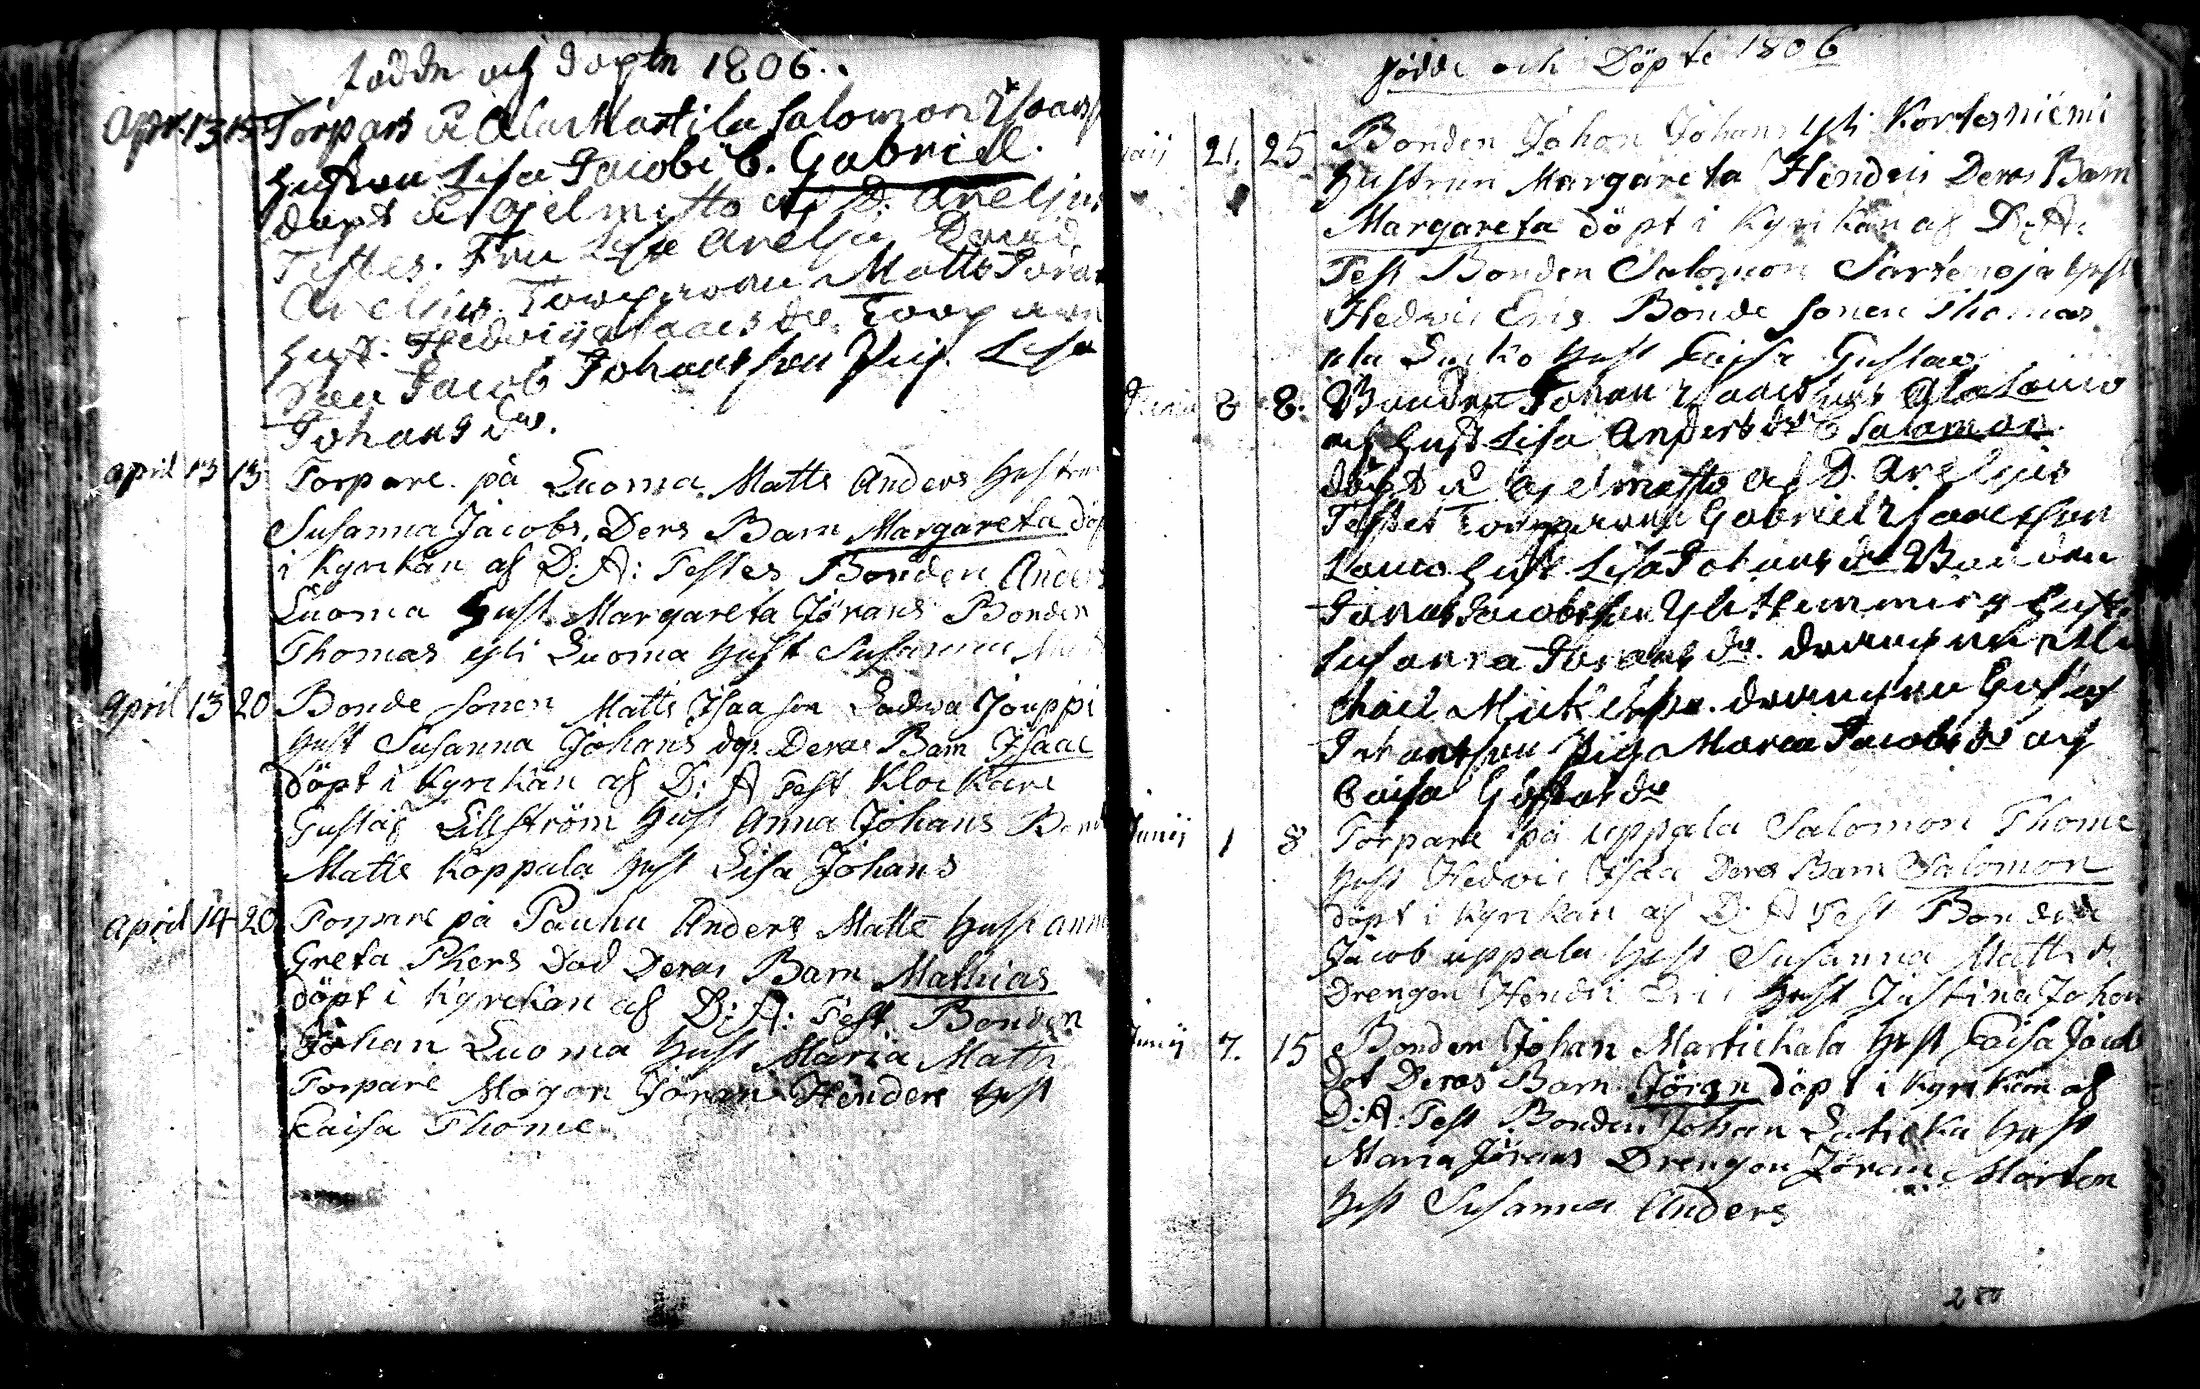 födde och döpte 1806.
Apr. 13 15 Torpars å Ala Martila Salomon Isaacs
hustru Lisa Jacobi b. Gabriel.
döpt å Gjelmesto af D. Arelius
Testes. Fru Lisa Arelia, David
Arelius. Torparen Matts Joran
hust. Hedvig Isaacs dr. Torpare
Jacob Johansson Pig. Lisa
Johans dr.
April 13 13 Torpare på Luoma Matts Anders hustru
Susanna Jacobs, Ders Barn Margareta döp
i Kyrckan af D: A: Testes Bonden Anders
Luoma hust Margareta Jörans Bonden
Thomas yli Luoma hust Susanna
April 13 20 Bonde sonen Matts Isaa son Ladwa Jouppi
hust Susanna Johans dot Deras Barn Isaac
döpt i Kyrckan af D: A Test Klockare
Gustaf Lillström hust Anna Johans
Matts Koppala hust Lisa Johans
April 14 20 Torpare på Pauhu Anders Matts hust Anna
Greta Phers Dod Deras Barn Mathias
döpt i Kyrckan af D: A: Test. Bonden
Johan Luoma hust Maria Matts
Torpare Jöran Henders hust
Caisa Thome
födde och Döpte 1806
21. 25 Bonden Johan Johans yli Kortesniemi
hustrun Margareta Hendri Deras Barn
Margareta döpt i Kyrckan af D: A:
Test Bonden Salomon hust
Hedvic Eris Bonde sonen Thomas
ala hust Caisa Gustav
8 8. Bonden Johan Isaacs son Ala Lauro
och hust Lisa Anders dr b Salomon.
döpt å Gjelmesto af D. Arelius
Testes Torparen Gabriel Isaacsson
Lauro hust Lisa Johans dr Bonden
Jonas Jacobsson hust.
Susanna Jorans dr. drengen Mi
chael Mickelss. drengen Gustaf
Johansson Piga Maria Jacobs dr och
Caisa Gustavs dr
Junij 1 8 Torpare på uppala Salomon Thome
hust Hedvic Isaa Deras Barn Salomon
döpt i Kyrckan af D: A Test Bonden
Jacob uppala hust Susanna Matts d.
Drengen Hendri Eri hust Justina Johan
Junij 7. 15 Bonden Johan Martickala hust Caisa Jacob
dot Deras Barn Jöran döpt i Kyrckan af
D: A: Test Bonden Johan hust
Maria Jörans Drengen Jöran Mårten
hust Susanna Anders
280